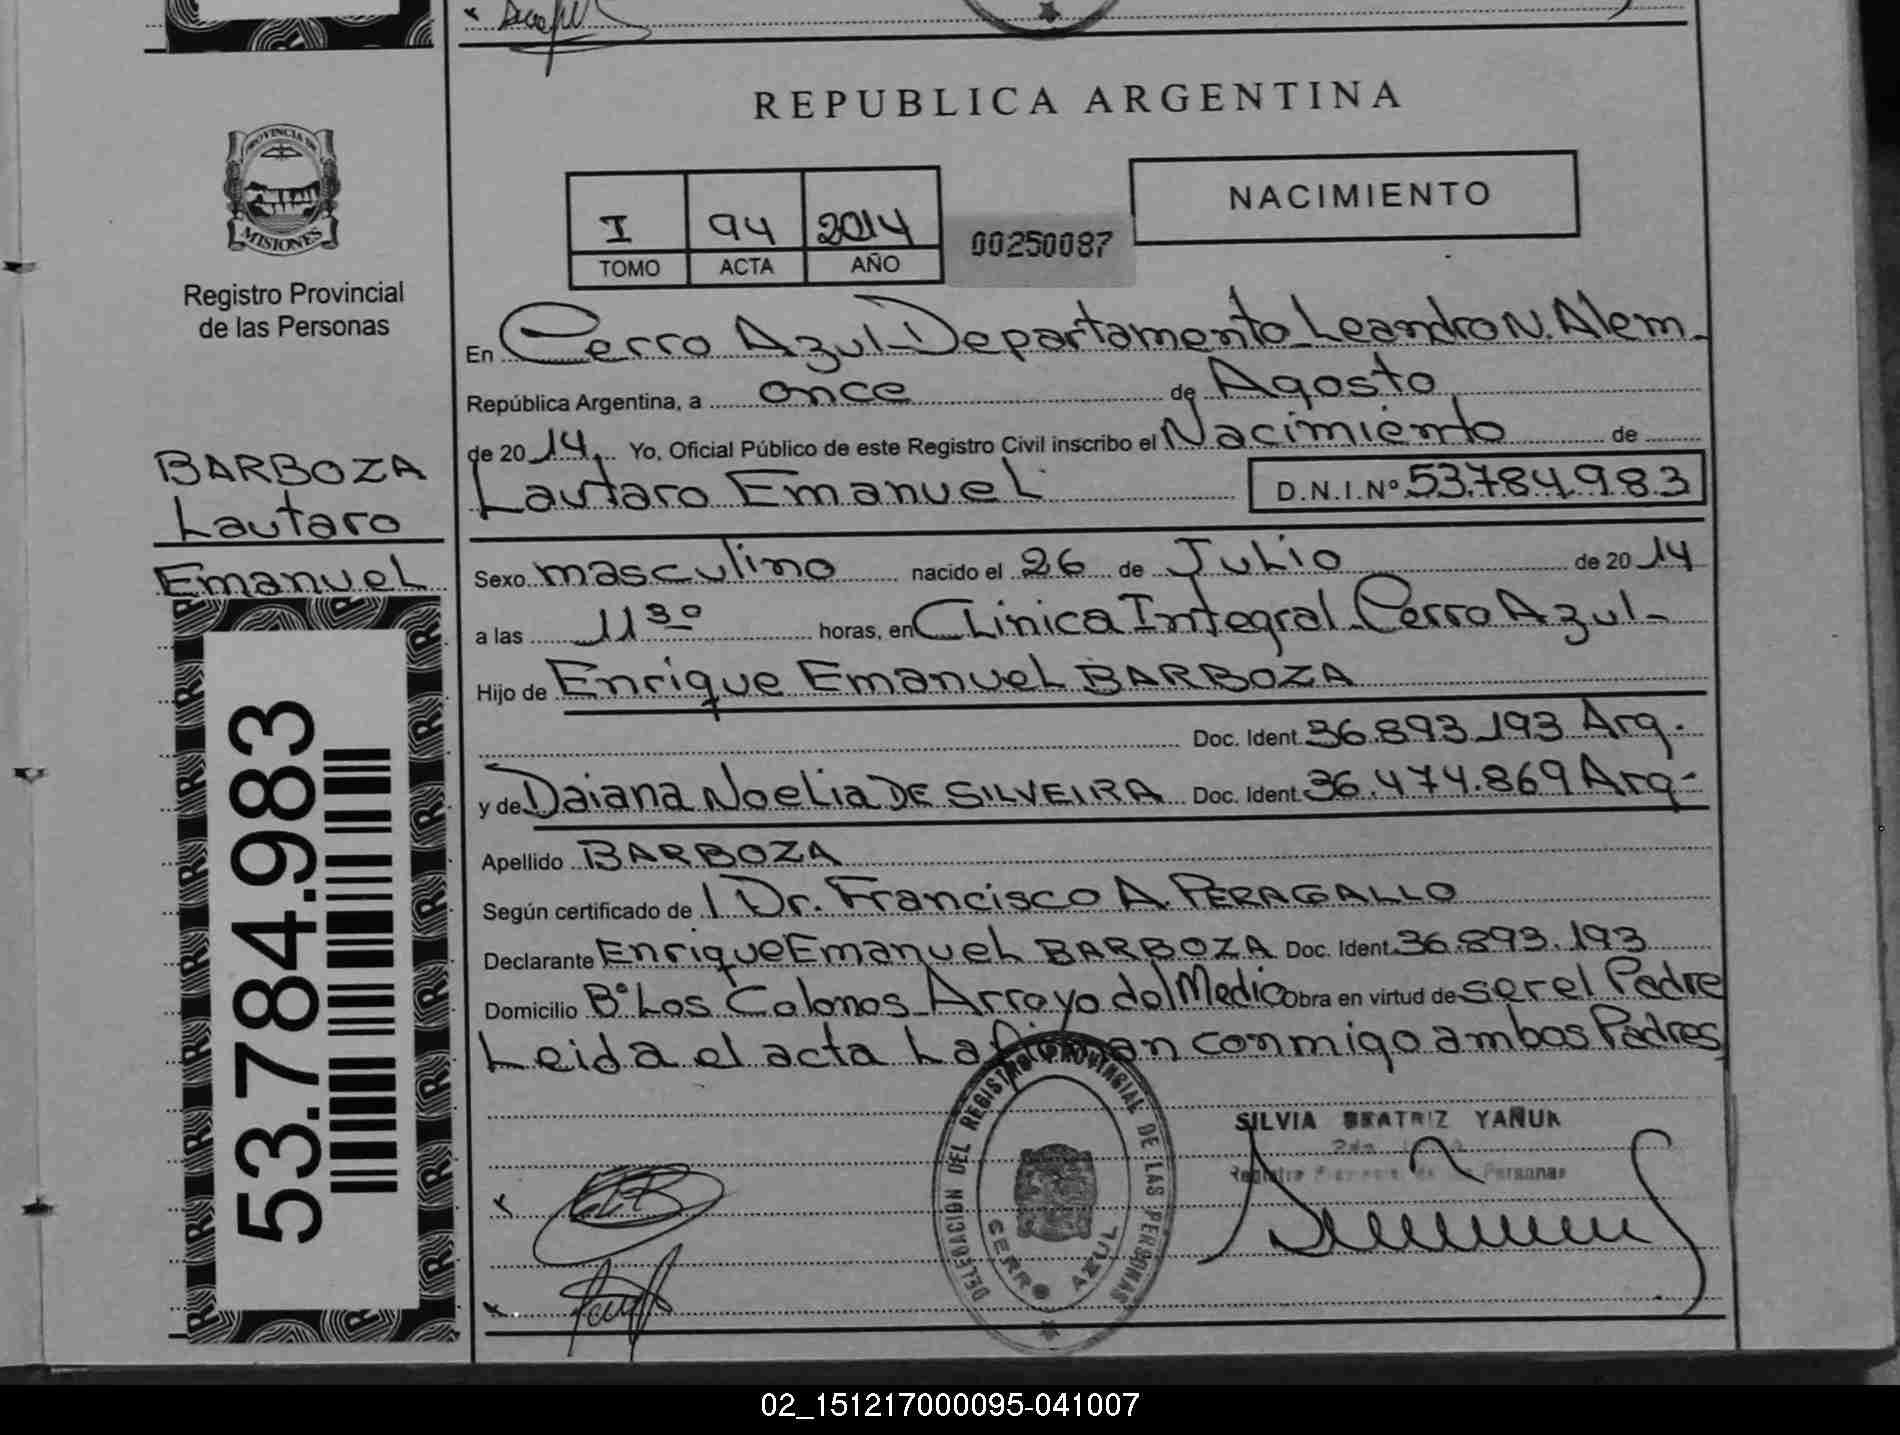 REPUBLICA ARGENTINA
PROVINCIA DE
MISIONES
Registro Provincial
de las Personas
I 94 2014
TOMO ACTA AÑO
00250087
NACIMIENTO
En Cerro Azul-Departamento Leandro N. Alem-
República Argentina, a once de Agosto
de 2014. Yo, Oficial Público de este Registro Civil inscribo el Nacimiento de
Lautaro Emanuel D.N.I.Nº 53.784.983
BARBOZA
Lautaro
Emanuel
53.784.983
Sexo masculino nacido el 26 de Julio de 2014
a las 11 30 horas, en Clinica Integral Cerro Azul-
Hijo de Enrique Emanuel BARBOZA
Doc. Ident. 36.893.193 Arg.
y de Daiana Noelia DE SILVEIRA Doc. Ident. 36.474.869 Arg-
Apellido BARBOZA
Según certificado de 1 Dr. Francisco A. PERAGALLO
Declarante Enrique Emanuel BARBOZA Doc. Ident. 36.893.193
Domicilio Bº Los Colonos Arroyo del Medio Obra en virtud de ser el Padre
Leida el acta La firman conmigo ambos Padres
DELEGACION DEL REGISTRO PROVINCIAL DE LAS PERSONAS
CERRO AZUL
SILVIA BEATRIZ YAÑUK
Personas
02_151217000095-041007